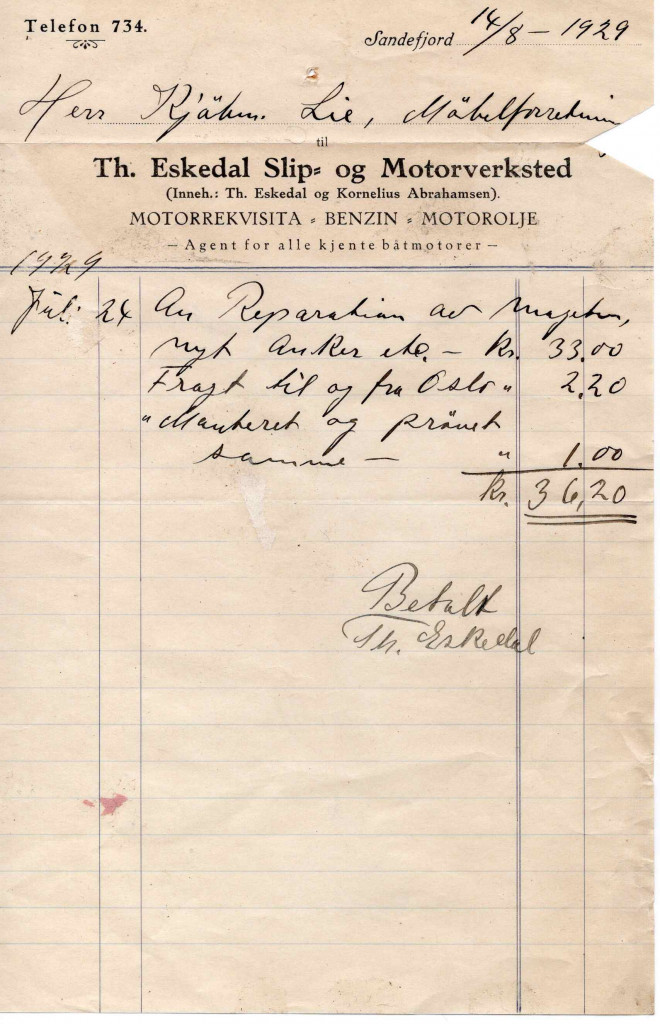 Telefon 734.
Sandefjord 14/8 – 1929
Herr Kjøbm. Lie, Møbelforretning
til
Th. Eskedal Slip- og Motorverksted
(Inneh.: Th. Eskedal og Kornelius Abrahamsen).
MOTORREKVISITA - BENZIN - MOTOROLJE
— Agent for alle kjente båtmotorer —
1929
Juli 24 An Reparation av Magneten,
nyt Anker etc. – Kr. 33.00
Fragt til og fra Oslo " 2.20
" Monteret og prøvet
samme – " 1.00
Kr. 36,20
Betalt
Th. Eskedal